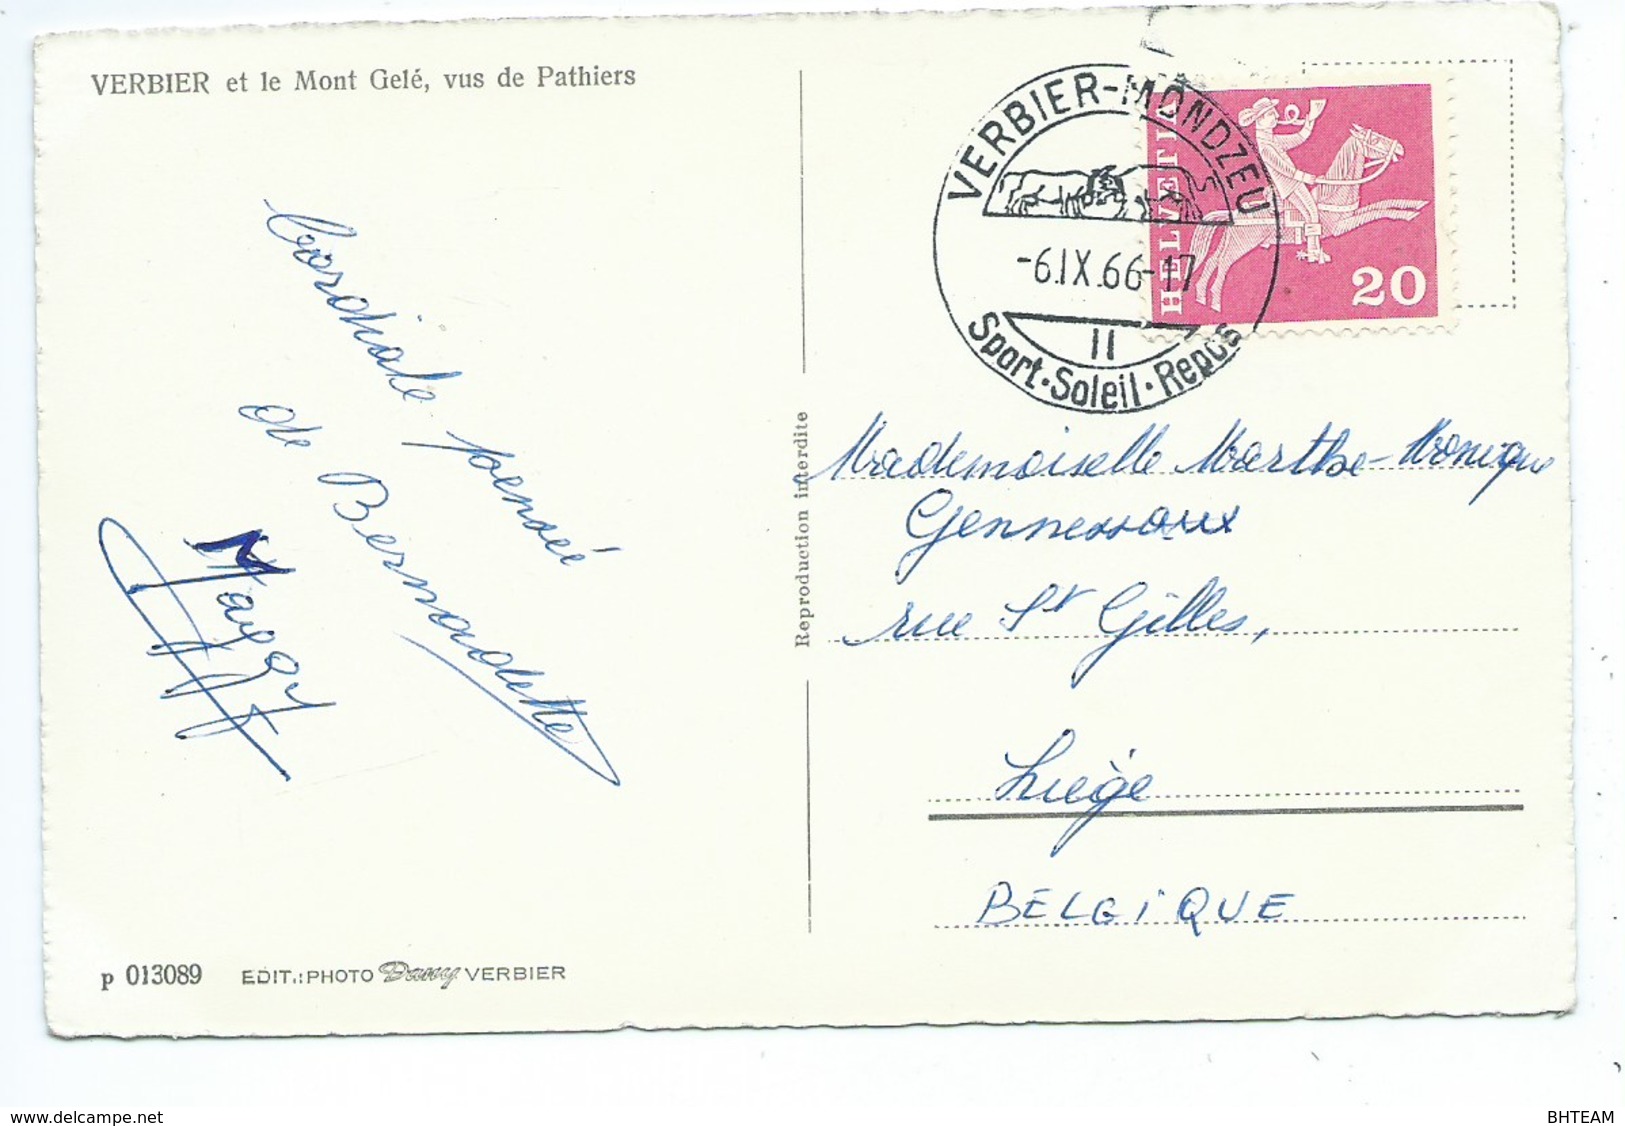 VERBIER et le Mont Gelé, vus de Pathiers
Cordiale pensée
de Bernadette
Margot
p 013089 EDIT.: PHOTO Dany VERBIER
Reproduction interdite
VERBIER-MONDZEU
-6.IX.66-17
II
Sport·Soleil·Repos
HELVETIA
20
Mademoiselle Marthe-Monique
Gennessaux
rue St Gilles,
Liège
BELGIQUE
delcampe.net
BHTEAM